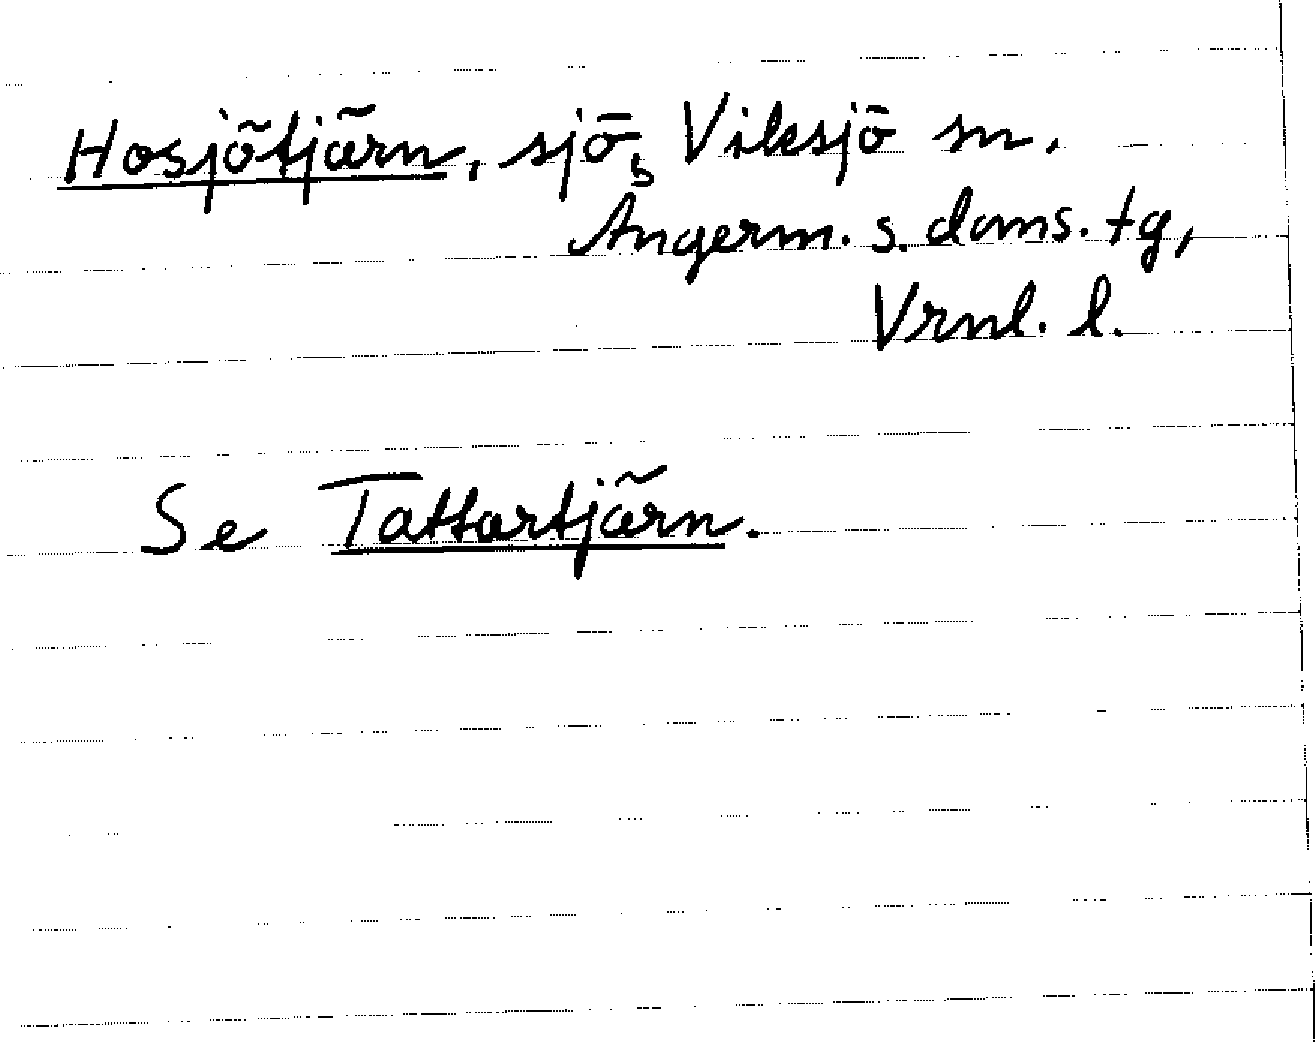 Hosjötjärn, sjö, Viksjö sn.
Ångerm. s. doms. tg,
Vrnl. l.
Se Tattartjärn.